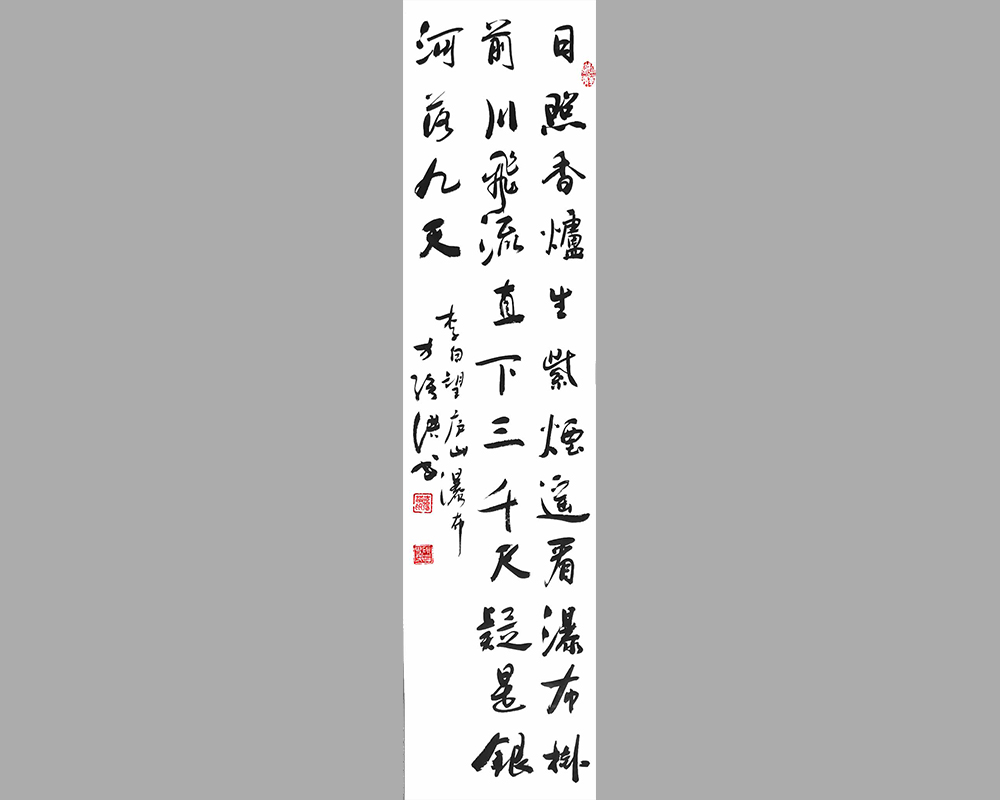 日照香爐生紫煙遥看瀑布掛
前川飛流直下三千尺疑是銀
河落九天
李白望庐山瀑布
方
書